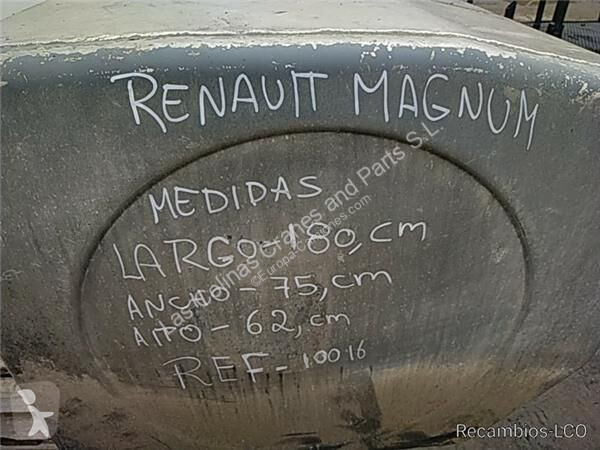 RENAULT MAGNUM
MEDIDAS
LARGO-180,cm
ANCHO-75,cm
AlTO-62,cm
REF-10016
Lastrolinas Cranes and Parts S.L.
©Europa-Camiones.com
Recambios-LCO